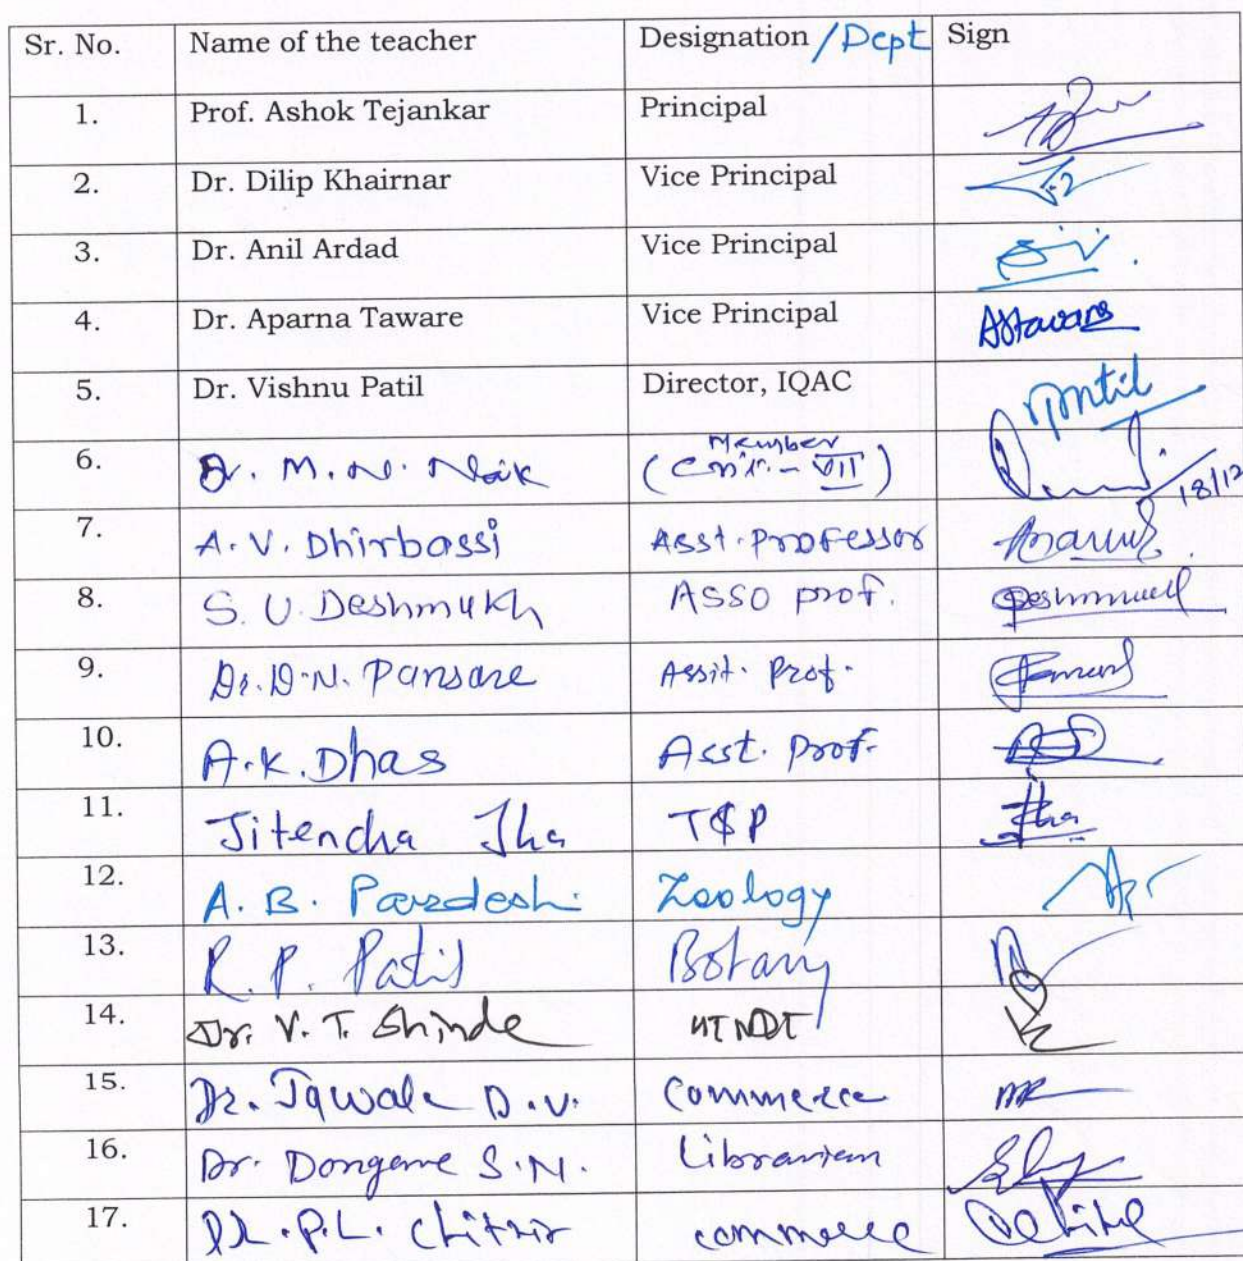 Sr. No. Name of the teacher Designation /Dept Sign
1. Prof. Ashok Tejankar Principal
2. Dr. Dilip Khairnar Vice Principal
3. Dr. Anil Ardad Vice Principal
4. Dr. Aparna Taware Vice Principal
5. Dr. Vishnu Patil Director, IQAC
Member
6. Dr. M. N. Naik VII)
18/12
7. A. V. Dhirbassi Asst. Professor
8. S. U. Deshmukh Asso prof. Deshmukh
9. Dr. D. N. Pansare Assit. Prof.
10. A. K. Dhas Asst. Prof.
11. Jitendra Jha T&P Jha
12. A. B. Pardeshi Zoology
13. R. P. Patil Botany
14. Dr. V. T. Shinde
15. Dr. Jawale D. V. Commerce
16. Dr. Dongare S. N. Librarian
17. Dr. P. L. commerce